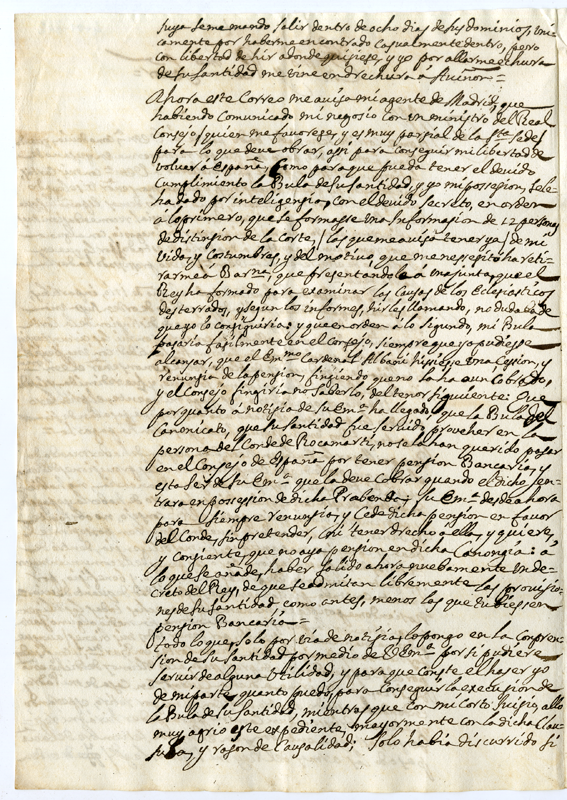 suya se me mando salir dentro de ocho dias de sus dominios, uni-
camente por haberme encontrado casualmente dentro, pero
con libertad de hir adonde quisiese, y yo por allarme echura
de su Santidad me vine en drechura a Aviñon =
Ahora este Correo me avisa mi agente de Madrid, que
habiendo comunicado mi negosio con un ministro del Real
Consejo, quien me favorese, y es muy parsial de la Sta. Sede,
para lo que deve obrar, assi para conseguir mi libertad de
volver à España, como para que pueda tener el devido
cumplimiento la Bula de su Santidad, y yo mi possesion, se le
ha dado por inteligensia, con el devido secreto, en orden
a lo primero, que se formasse una Informasion de 12 personas
de distinsion de la Corte, (las que me avisa tener ya) de mi
vida, y Costumbres, y del motivo que me nesesitò ha reti-
rarme a Barna. que presentandole a una junta, que el
Rey ha formado para examinar las Causas de los Eclesiasticos
desterrados, y segun los informes, hirles llamando, no duda de
que yo lo conseguiria: y que en orden a lo segundo, mi Bula
pasaria fasilmente en el Consejo, siempre que yo pudiesse
alcansar, que el Emmo. Cardenal Albani hisiese una Cession, y
renunsia de la pension, fingiendo que no la ha aun cobrado,
y el Consejo fingiria no saberlo, del tenor siguiente: Que
por quanto a notisia de su Emª. ha llegado que la Bulla del
Canonicato, que su Santidad fue servido proveher en la
persona del Conde de Rocamarti, no se la han querido pasar
en el Consejo de España por tener pension Bancaria, y
esta ser de su Emª. que la deve cobrar quando el dicho, en-
trara en possession de dicha Prabenda; su Emª. desde ahora
para siempre renunsia, y Cede dicha pension en favor
del Conde, sin pretender, ni tener drecho a ella, y quiere,
y Consiente, que no aya pension en dicha Canongia: a
lo que se añade, haber salido ahora nuebamente un de-
creto del Rey, de que se admitan libremente las provisio-
nes de su Santidad, como antes, menos las que tubiessen
pension Bancaria =
todo lo que, solo por via de notisia, lo pongo en la Conpren-
sion de su Santidad por medio de V Emª. por si pudiere
servir de alguna utilidad, y para que conste el haser yo
de mi parte, quanto puedo, para conseguir la execusion de
la Bula de su Santidad, mientras que con mi corto Juisio, allo
muy agrio este expediente, mayormente con la dicha Clau-
sula, y rason de Causalidad: Solo habia discurrido si